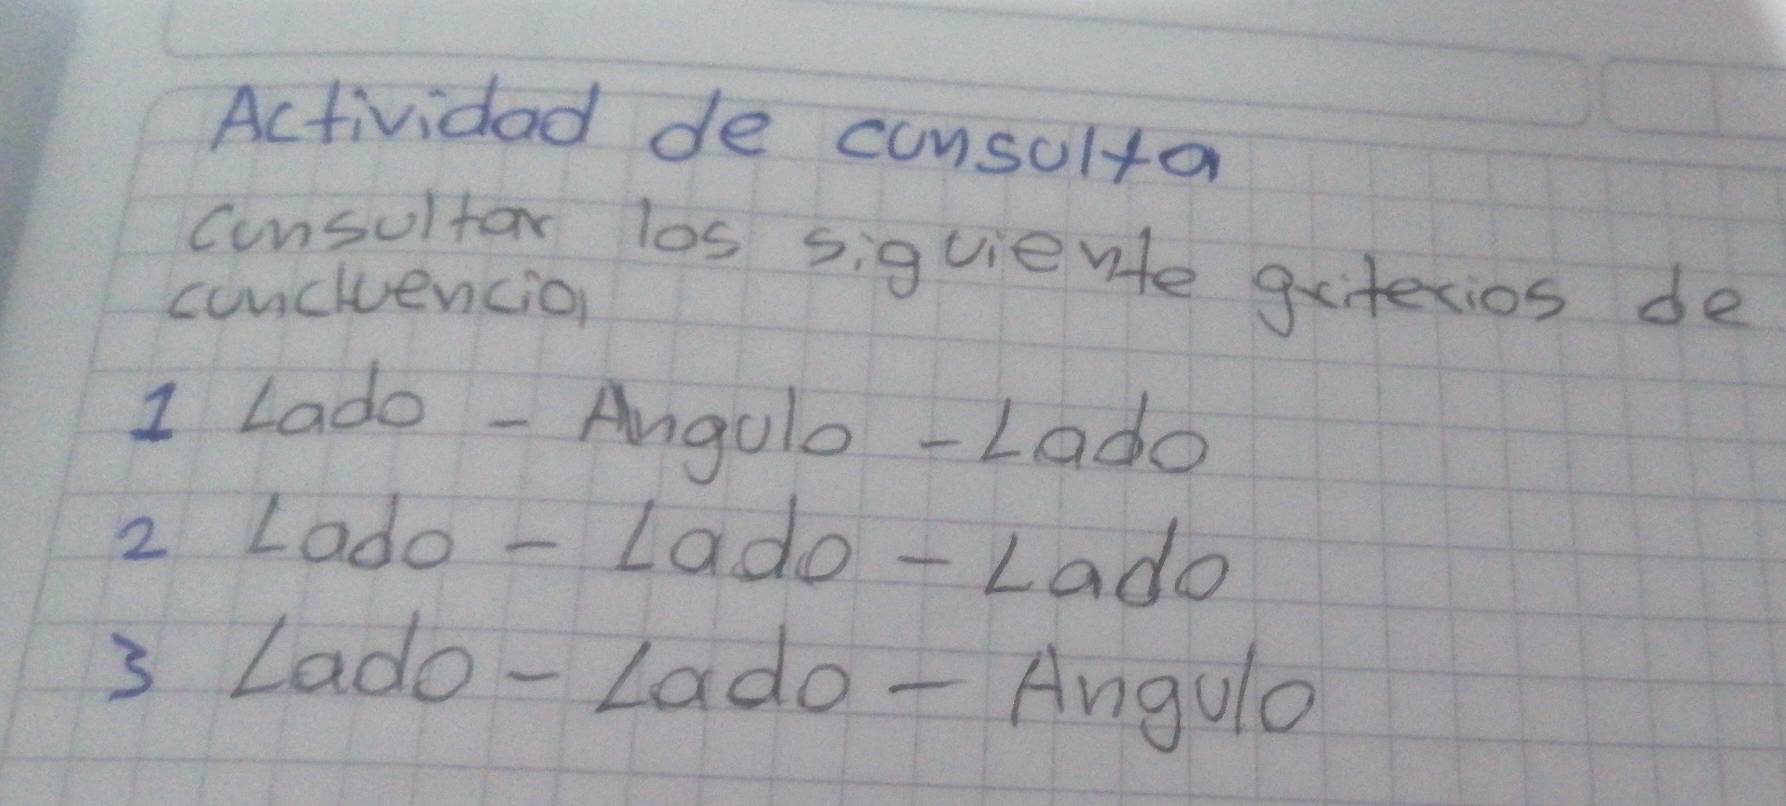 Actividad de consulta
consultar los siguiente griterios de
concluencia
1 Lado - Angulo - Lado
2 Lado - Lado - Lado
3 Lado - Lado - Angulo